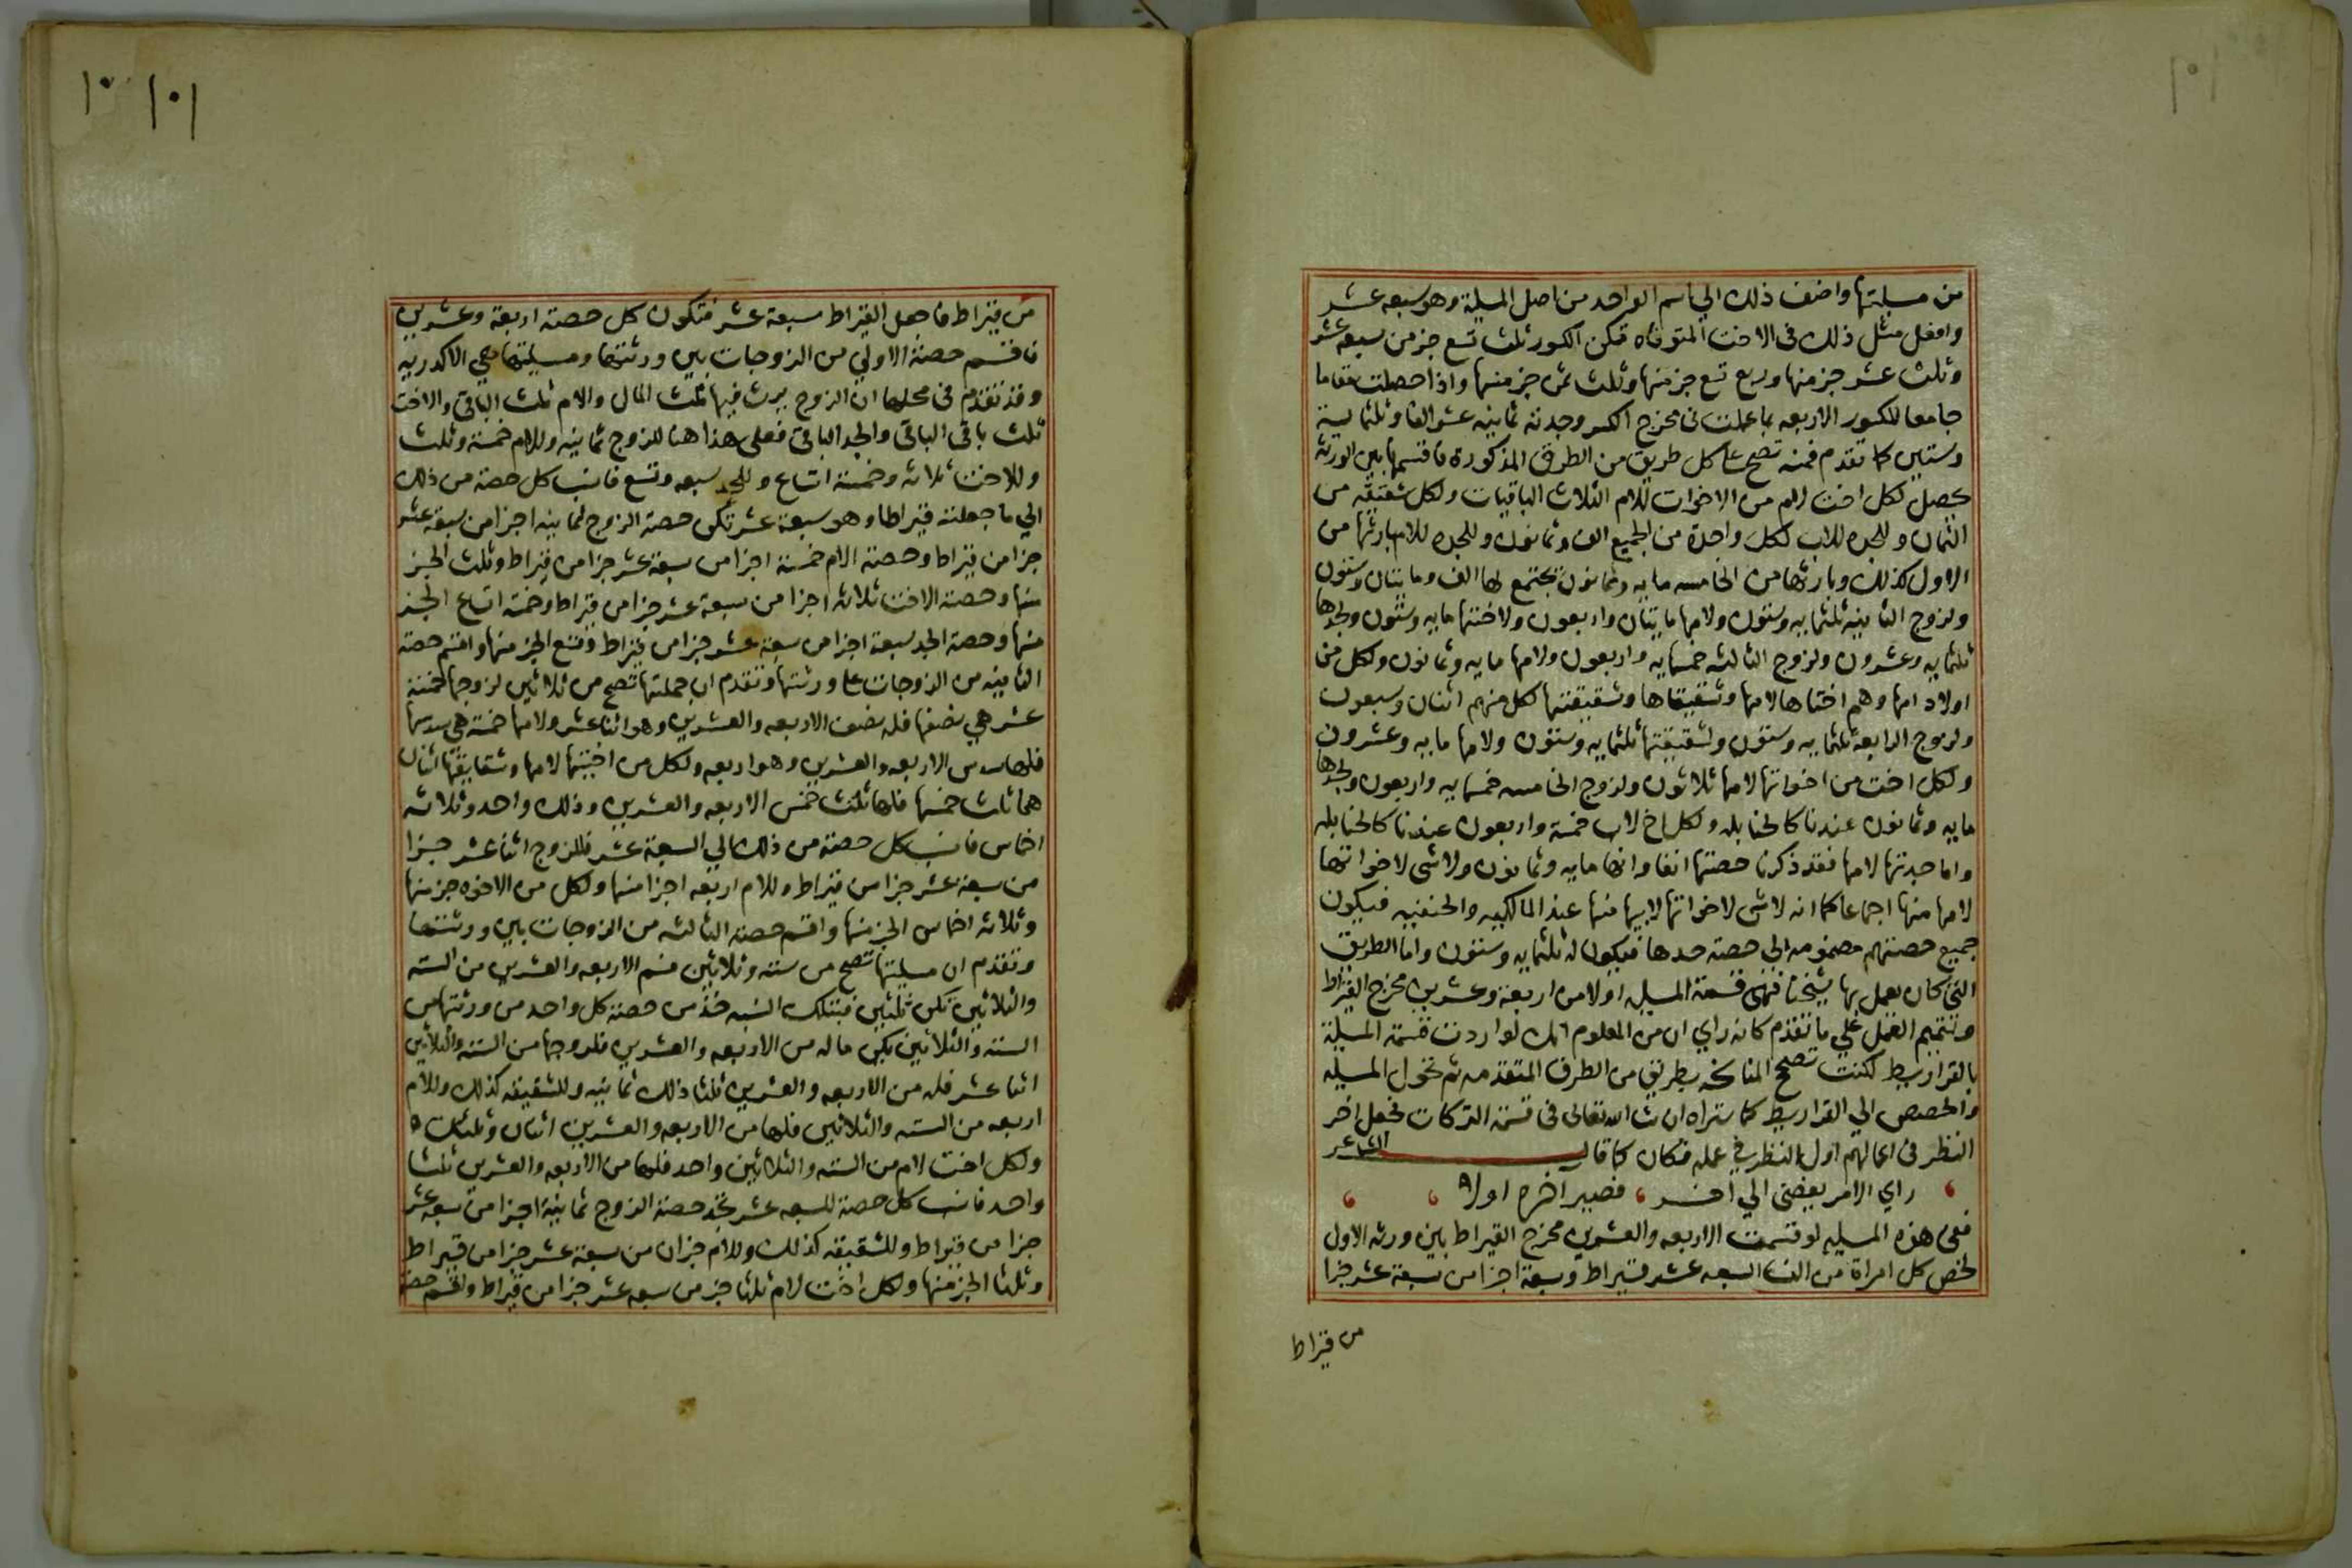 من مسيلتها واضف ذلك الي اسم الواحد من اصل المسيلة وهو سبعه عشر
وافعل مثل ذلك فى الاخت المتوفاه تكن الكسور ثلث تسع جز من سبعه عشر
وثلث عشر جز منها وربع تسع جز منها وثلث ثمن جز منها واذا حصلت مقاما
جامعا للكسور الاربعه بما عملت فى مخرج الكسر وجدته ثمانيه عشر الفا وثلثماية
وستين كما تقدم فمنه تصح على كل طريق من الطرق المذكورة فاقسمها بين الورثه
يحصل لكل اخت لام من الاخوات للام الثلاث الباقيات ولكل شقيقه من
الثمان وللجده للاب لكل واحدة من الجميع الف وثمانون وللجده للام بارثها من
الاول كذلك وبارثها من الخامسه مايه وثمانون يجتمع لها الف ومايتان وستون
ولزوج الثانيه ثلثمايه وستون ولامها مايتان واربعون ولاختها مايه وستون ولجدها
ثلثمايه وعشرون ولزوج الثالثه خمسمايه واربعون ولامها مايه وثمانون ولكل من
اولاد امها وهم اختاها لامها وشقيقاها وشقيقتها لكل منهم اثنان وسبعون
ولزوج الرابعه ثلثمايه وستون ولشقيقتها ثلثمايه وستون ولامها مايه وعشرون
ولكل اخت من اخواتها لامها ثلاثون ولزوج الخامسه خمسمايه واربعون ولجدها
مايه وثمانون عندنا كالحنابله ولكل اخ لاب خمسة واربعون عندنا كالحنابله
واما جدتها لامها فقد ذكرنا حصتها انفا وانها مايه وثمانون ولا شى لاخواتها
لامها منها اجماعا كما انه لا شى لاخواتها لابيها منها عند المالكيه والحنفيه فيكون
جميع حصتهم مضمومه الي حصة جدها فيكون له ثلثمايه وستون واما الطريق
التى كان يعمل بها شيخنا فهى قسمة المسيله اولا من اربعة وعشرين مخرج القيراط
وتتميم العمل علي ما تقدم كانه راي ان من المعلوم انك لو اردت قسمة المسيلة
بالقراريط لكنت تصحح المناسخه بطريق من الطرق المتقدمه ثم تحول المسيله
والحصص الي القراريط كما ستراه ان شا الله تعالى فى قسمة التركات فجعل اخر
النظر فى اعمالهم اول النظر في عمله فكان كما قال الشاعر
راي الامر يفضى الي اخر ، فصير اخره اولا
ففى هذه المسيله لو قسمت الاربعه والعشرين مخرج القيراط بين ورثه الاول
لخص كل امراة من السبعه عشر قيراط وسبعة اجزا من سبعة عشر جزا
من قيراط
١٠١
من قيراط فاجعل القيراط سبعة عشر فتكون كل حصته اربعة وعشرين
فاقسم حصة الاولي من الزوجات بين ورثتها ومسيلتها هي الاكدريه
وقد تقدم فى محلها ان الزوج يرث فيها ثلث المال والام ثلث الباقى والاخت
ثلث باقى الباقى والجد الباقى فعلى هذا هنا للزوج ثمانيه وللام خمسة وثلث
وللاخت ثلاثه وخمسة اتساع وللجد سبعه وتسع فانسب كل حصة من ذلك
الي ما جعلته قيراطا وهو سبعة عشر تكن حصة الزوج ثمانيه اجزا من سبعة عشر
جزا من قيراط وحصة الام خمسة اجزا من سبعة عشر جزا من قيراط وثلث الجز
منها وحصة الاخت ثلاثه اجزا من سبعة عشر جزا من قيراط وخمسة اتساع الجز
منها وحصة الجد سبعة اجزا من سبعة عشر جزا من قيراط وتسع الجز منها واقسم حصة
الثانيه من الزوجات على ورثتها وتقدم ان جملتها تصح من ثلاثين لزوجها خمسة
عشر هي نصفها فله نصف الاربعه والعشرين وهو اثنا عشر ولامها خمسة هى سدسها
فلها سدس الاربعه والعشرين وهو اربعه ولكل من اختيها لامها وشقايقها اثنان
هما ثلث خمسها فلها ثلث خمس الاربعه والعشرين وذلك واحد وثلاثه
اخماس فانسب كل حصة من ذلك الي السبعة عشر فللزوج اثنا عشر جزا
من سبعة عشر جزا من قيراط وللام اربعه اجزا منها ولكل من الاخوه جز منها
وثلاثه اخماس الجز منها واقسم حصة الثالثه من الزوجات بين ورثتها
وتقدم ان مسيلتها تصح من ستة وثلاثين فسم الاربعه والعشرين من السته
والثلاثين تكن ثلثين فبتلك النسبه خذ من حصة كل واحد من ورثتها من
السته والثلاثين يكن ماله من الاربعه والعشرين فلزوجها من السته والثلاثين
اثنا عشر فله من الاربعه والعشرين ثلثا ذلك ثمانيه وللشقيقه كذلك وللام
اربعه من السته والثلاثين فلها من الاربعه والعشرين اثنان وثلثان
ولكل اخت لام من السته والثلاثين واحد فلها من الاربعه والعشرين ثلثا
واحد فانسب كل حصة للسبعه عشر تجد حصة الزوج ثمانية اجزا من سبعه عشر
جزا من قيراط وللشقيقه كذلك وللام جزان من سبعة عشر جزا من قيراط
وثلثا الجز منها ولكل اخت لام ثلثا جز من سبعه عشر جزا من قيراط واقسم حصة
١٠ ١٠١